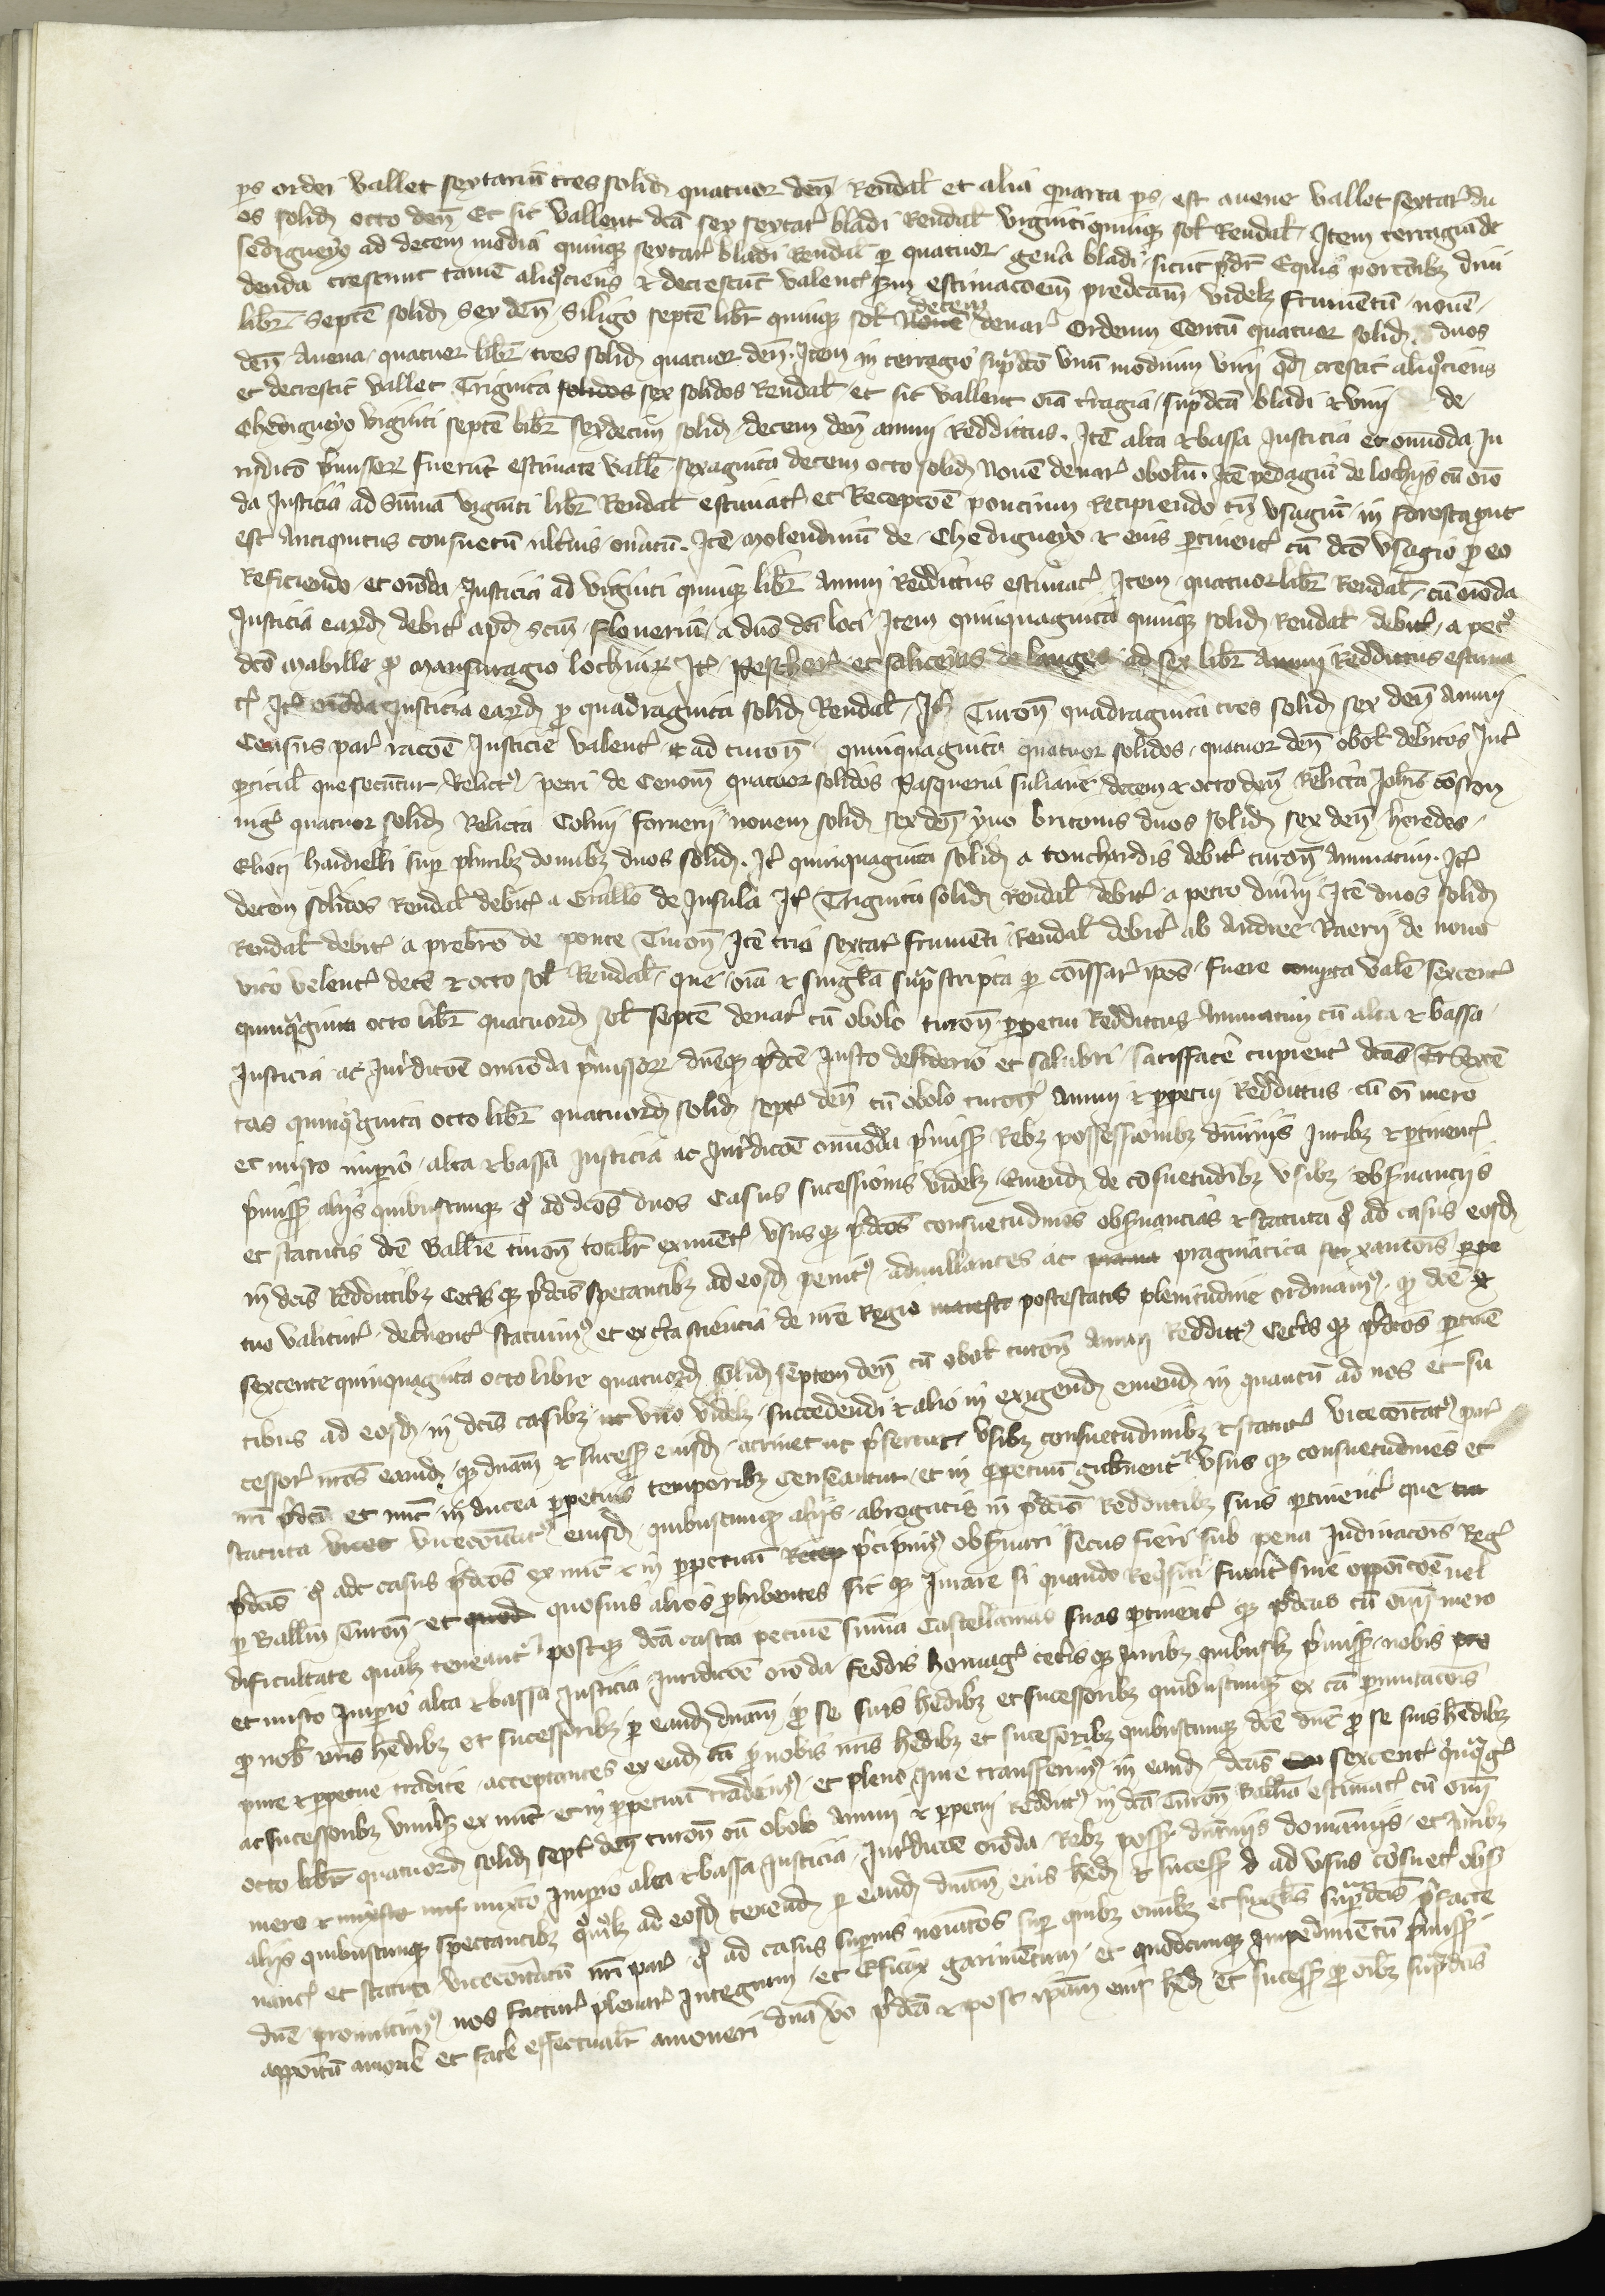 ps ordei vallet sextariũ tres solid quatuor deñ Rendal et alia quarta ps est avene vallet sextar du
os solid octo deñ Et sic vallent dcã sex sextar bladi Rendal viginti quinque sol Rendal Item terragia de
sedigueyo ad decem media quinque sextar bladi Rendal p quatuor genera bladi sicut pdr Equis porcoibz divi
denda crescunt tamẽ aliqociens & decrescũt valent scdm estimacoem predcam videlz frumẽtũ novẽ
libr septẽ solid sex deñ Siligo septẽ libr quinque sol novẽ decem denar Ordeum Centũ quatuor solid duos
deñ Avena quatuor libr tres solid quatuor deñ. Item in terragio supdco unũ modium vini qd crescit aliqociens
et decrescit vallet Triginta solidos sex solidos Rendal et sic vallent oia tragia supdcã bladi & vini de
Chedigueyo viginti septẽ libr sexdecim solid decem deñ annui Reddittus. Itẽ alta & bassa Justicia et omoda Ju
ridicõ pmissor fuerũt estimate vallẽ sexaginta decem octo solid Novẽ denar obolũ. Itẽ pedagiũ de lochiis cũ oio
da Justicia ad Sũmã viginti libr Rendal estimat et Recepcoẽ poncium Recipiendo tñ usagiũ in foresta put
est Antiquitus consuetũ ultius onatũ. Itẽ molendinũ de Chedigueyo & eius ptinent cũ dco usagio p eo
Reficiendo et oioda Justicia ad viginti quinque libr Annui Reddittus estimat Item quatuor libr Rendal cũ oioda
Justicia eard debit apd scm Flouerium a dño dci loci Item quinquaginta quinque solid Rendal debit a pet
dco mabille p mansuragio lochiar It Pescher et saliceris de langes ad sex libr Annui Reddittus estima
t It oioda Justicia eard p quadraginta solid Rendal It Turoñ quadraginta tres solid sex deñ Annui
Census par racoẽ Justicie valent & ad turoñ quinquaginta quatuor solidos quatuor deñ obol debitos Int
pticul que secũtur Relict petri de Cenom quatuor solidos Pasqueria Juliane decem & octo deñ Relicta Johis coston
nig quatuor solid Relicta Colini fornerii novem solid sex deñ yvo britonis duos solid sex deñ heredes
Elioti hardielli sup pluribz domibz duos solid. It quinquaginta solid a touchardis debit turoñ Annuatim. It
decem solidos Rendal debit a Guillo de Insula It Triginta solid Rendal debit a petro Itẽ duos solid
Rendal debit a prebro de ponte Turoñ Itẽ tria sextar frumẽti Rendal debit ab Andree Raerii de novo
vico velent decẽ & octo sol Rendal que oia & singla supscripta p coissar ipos fuere valẽ sexcent
quinqginta octo libr quatuord sol septẽ denar cũ obolo turoñ ppetui Reddittus Annuatim cũ alta & bassa
Justicia ac Jurdicoẽ omoda pmissor dueque pdce Justo desiderio et salubri satisfacẽ cupient dcas Sexcẽ
tas quinqginta octo libr quatuord solid sept deñ cũ obolo turoñ Annui & ppetui Reddittus cũ oi mero
et mixto impio alta & bassa Justicia ac Jurdicoẽ omoda pmiss Rebz possessionibz dñiis Juribz & ptinent
pmiss aliis quibuscumque q ad dcos duos Casus sucessionis videlz Emend de cosuetudibz usibz obsvanciis
et statutis dce Ballie turoñ totalr eximẽt ususque pdcos consuetudines obsvancias & statuta q ad casus eosd
in dcis Reddittibz Cetisque pdcis spectantibz ad eosd penit adnullantes ac pragmatica sanxantois ppe
tuo valitur decnent statuim et ex cta sciencia de nre Regie potestatis plenitudine ordinam q dce
sexcente quinquaginta octo libre quatuord solid septem deñ cũ obol turoñ Annui Reddit Cetisque pdcos ptinẽ
tibus ad eosd in dcis casibz ut uno videlz succedendi & alio in exigend emend in quantũ ad nos et su
cessor nros eamdque dnam & sucess eiusd attinet ut pfertur usibz consuetudinibz & statut vicecoitat par
nri pdca et nũc in ducea ppetuis temporibz Censeantur et in ppetuũ gubnentr ususque consuetudines et
statuta vicecoitat eiusd quibuscumque aliis abrogatis in pdcis Reddittibz suis ptinent que
pdcis q ad casus pdcos ex nũc & in ppetuũ pcipim obsvari Secus fieri sub pena Judinacois Reg
p Ballim Turoñ et quosuis alios phibentes sic que Jurare si quando Reqsiti fuint sine oppoicoẽ vel
dificultate qualz teneantr postque dcã casta pecuniẽ sũmã Castellanias suas ptinentque pdcas cũ omi mero
et mixto Impio alta & bassa Justicia Jurdicoẽ oioda Feodis homag cetisque Juribz quibuslz pmiss nobis
p nob nris hedibz et sucessoribz p eand dnam p se suis hedibz et sucessoribz quibuscumque ex cã pmutacois
pure & ppetue tradite acceptantes ex ead cã p nobis nris hedibz et sucessoribz quibuscumque dce dne p se suis hedibz
ac sucessoribz univis ex nũc et in ppetuũ tradeim et pleno Jure transferim in eand dcas sexcent quqg
octo libr quatuord solid sept deñ turoñ cũ obolo Annui & ppetui Reddit in dca Turoñ Ballia estimat cũ omi
mero & mixto Impio alta & bassa Justicia Jurdicoẽ oioda Rebz poss dñiis domaniis et Juribz
aliis quibuscumque spectantibz qmolz ad eosd tenend p eand dnam eius hed & sucess ad usus cosuet obs
vanc et statuta vicecoitatũ nri par q ad casus supius noiatos sup quibz omibz et singlis supdcis pfacte
dne promitim nos factur plenar Integrum et Eficax garimẽtum et quodcumque Impedimẽtũ pmiss
appoitũ amovẽ et facẽ effectualr amoveri dna vo pdca & post ipam eius hed et sucess p oibz supdcis